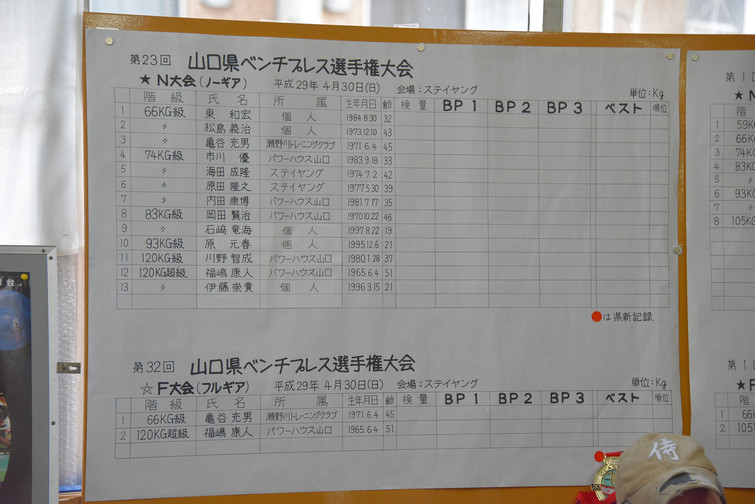 第23回 山口県ベンチプレス選手権大会
★ N大会(ノーギア) 平成29年 4月30日(日) 会場：ステイヤング 単位：Kg
階級 氏名 所属 生年月日 齢 検量 BP 1 BP 2 BP 3 ベスト 順位
1 66KG級 東 和宏 個人 1984.8.30 32
2 〃 松島義治 個人 1973.12.10 43
3 〃 亀谷充男 瀬野川トレーニングクラブ 1971.6.4 45
4 74KG級 市川 優 パワーハウス山口 1983.9.18 33
5 〃 海田成隆 ステイヤング 1974.7.2 42
6 〃 原田隆之 ステイヤング 1977.5.30 39
7 〃 内田康博 パワーハウス山口 1981.7.17 35
8 83KG級 岡田賢治 パワーハウス山口 1970.10.22 46
9 〃 石﨑竜海 個人 1997.8.22 19
10 93KG級 原 元春 個人 1995.12.6 21
11 120KG級 川野智成 パワーハウス山口 1980.1.28 37
12 120KG超級 福嶋康人 パワーハウス山口 1965.6.4 51
13 〃 伊藤崇貴 個人 1996.3.15 21
●は県新記録
第32回 山口県ベンチプレス選手権大会
☆ F大会(フルギア) 平成29年 4月30日(日) 会場：ステイヤング 単位：Kg
階級 氏名 所属 生年月日 齢 検量 BP 1 BP 2 BP 3 ベスト 順位
1 66KG級 亀谷充男 瀬野川トレーニングクラブ 1971.6.4 45
2 120KG超級 福嶋康人 パワーハウス山口 1965.6.4 51
第1
★N
1 59KG
2 66KG
3 74KG
4 83KG
5 〃
6 〃
7 〃
8 105KG
第1
★F
1 66K
2 105
侍